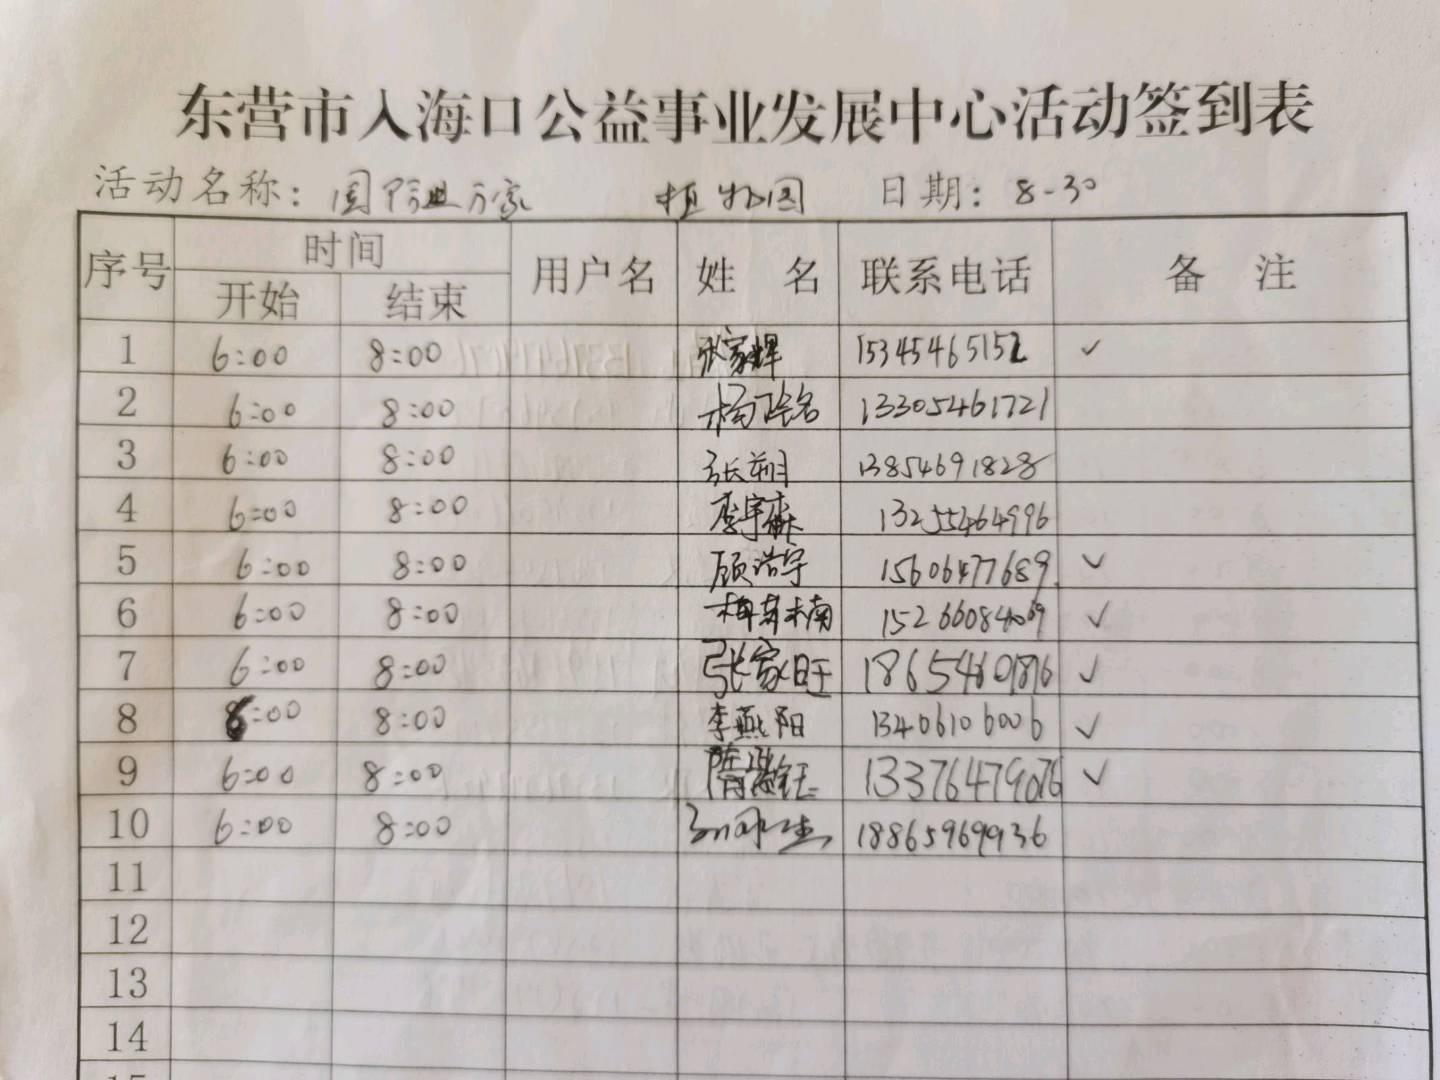 东营市入海口公益事业发展中心活动签到表
活动名称： 国防进万家 植物园 日期：8-30
序号 时间 用户名 姓 名 联系电话 备 注
开始 结束
1 6:00 8:00 张家辉 15345465152 ✓
2 6:00 8:00 杨 13305461721
3 6:00 8:00 张朔 13854691828
4 6:00 8:00 李宇 13255464996
5 6:00 8:00 顾浩宇 15606477689 ✓
6 6:00 8:00 楠 15266084069 ✓
7 6:00 8:00 张家旺 18654601876 ✓
8 6:00 8:00 李燕阳 13406106006 ✓
9 6:00 8:00 隋钰 13376479076 ✓
10 6:00 8:00 18865969936
11
12
13
14
15